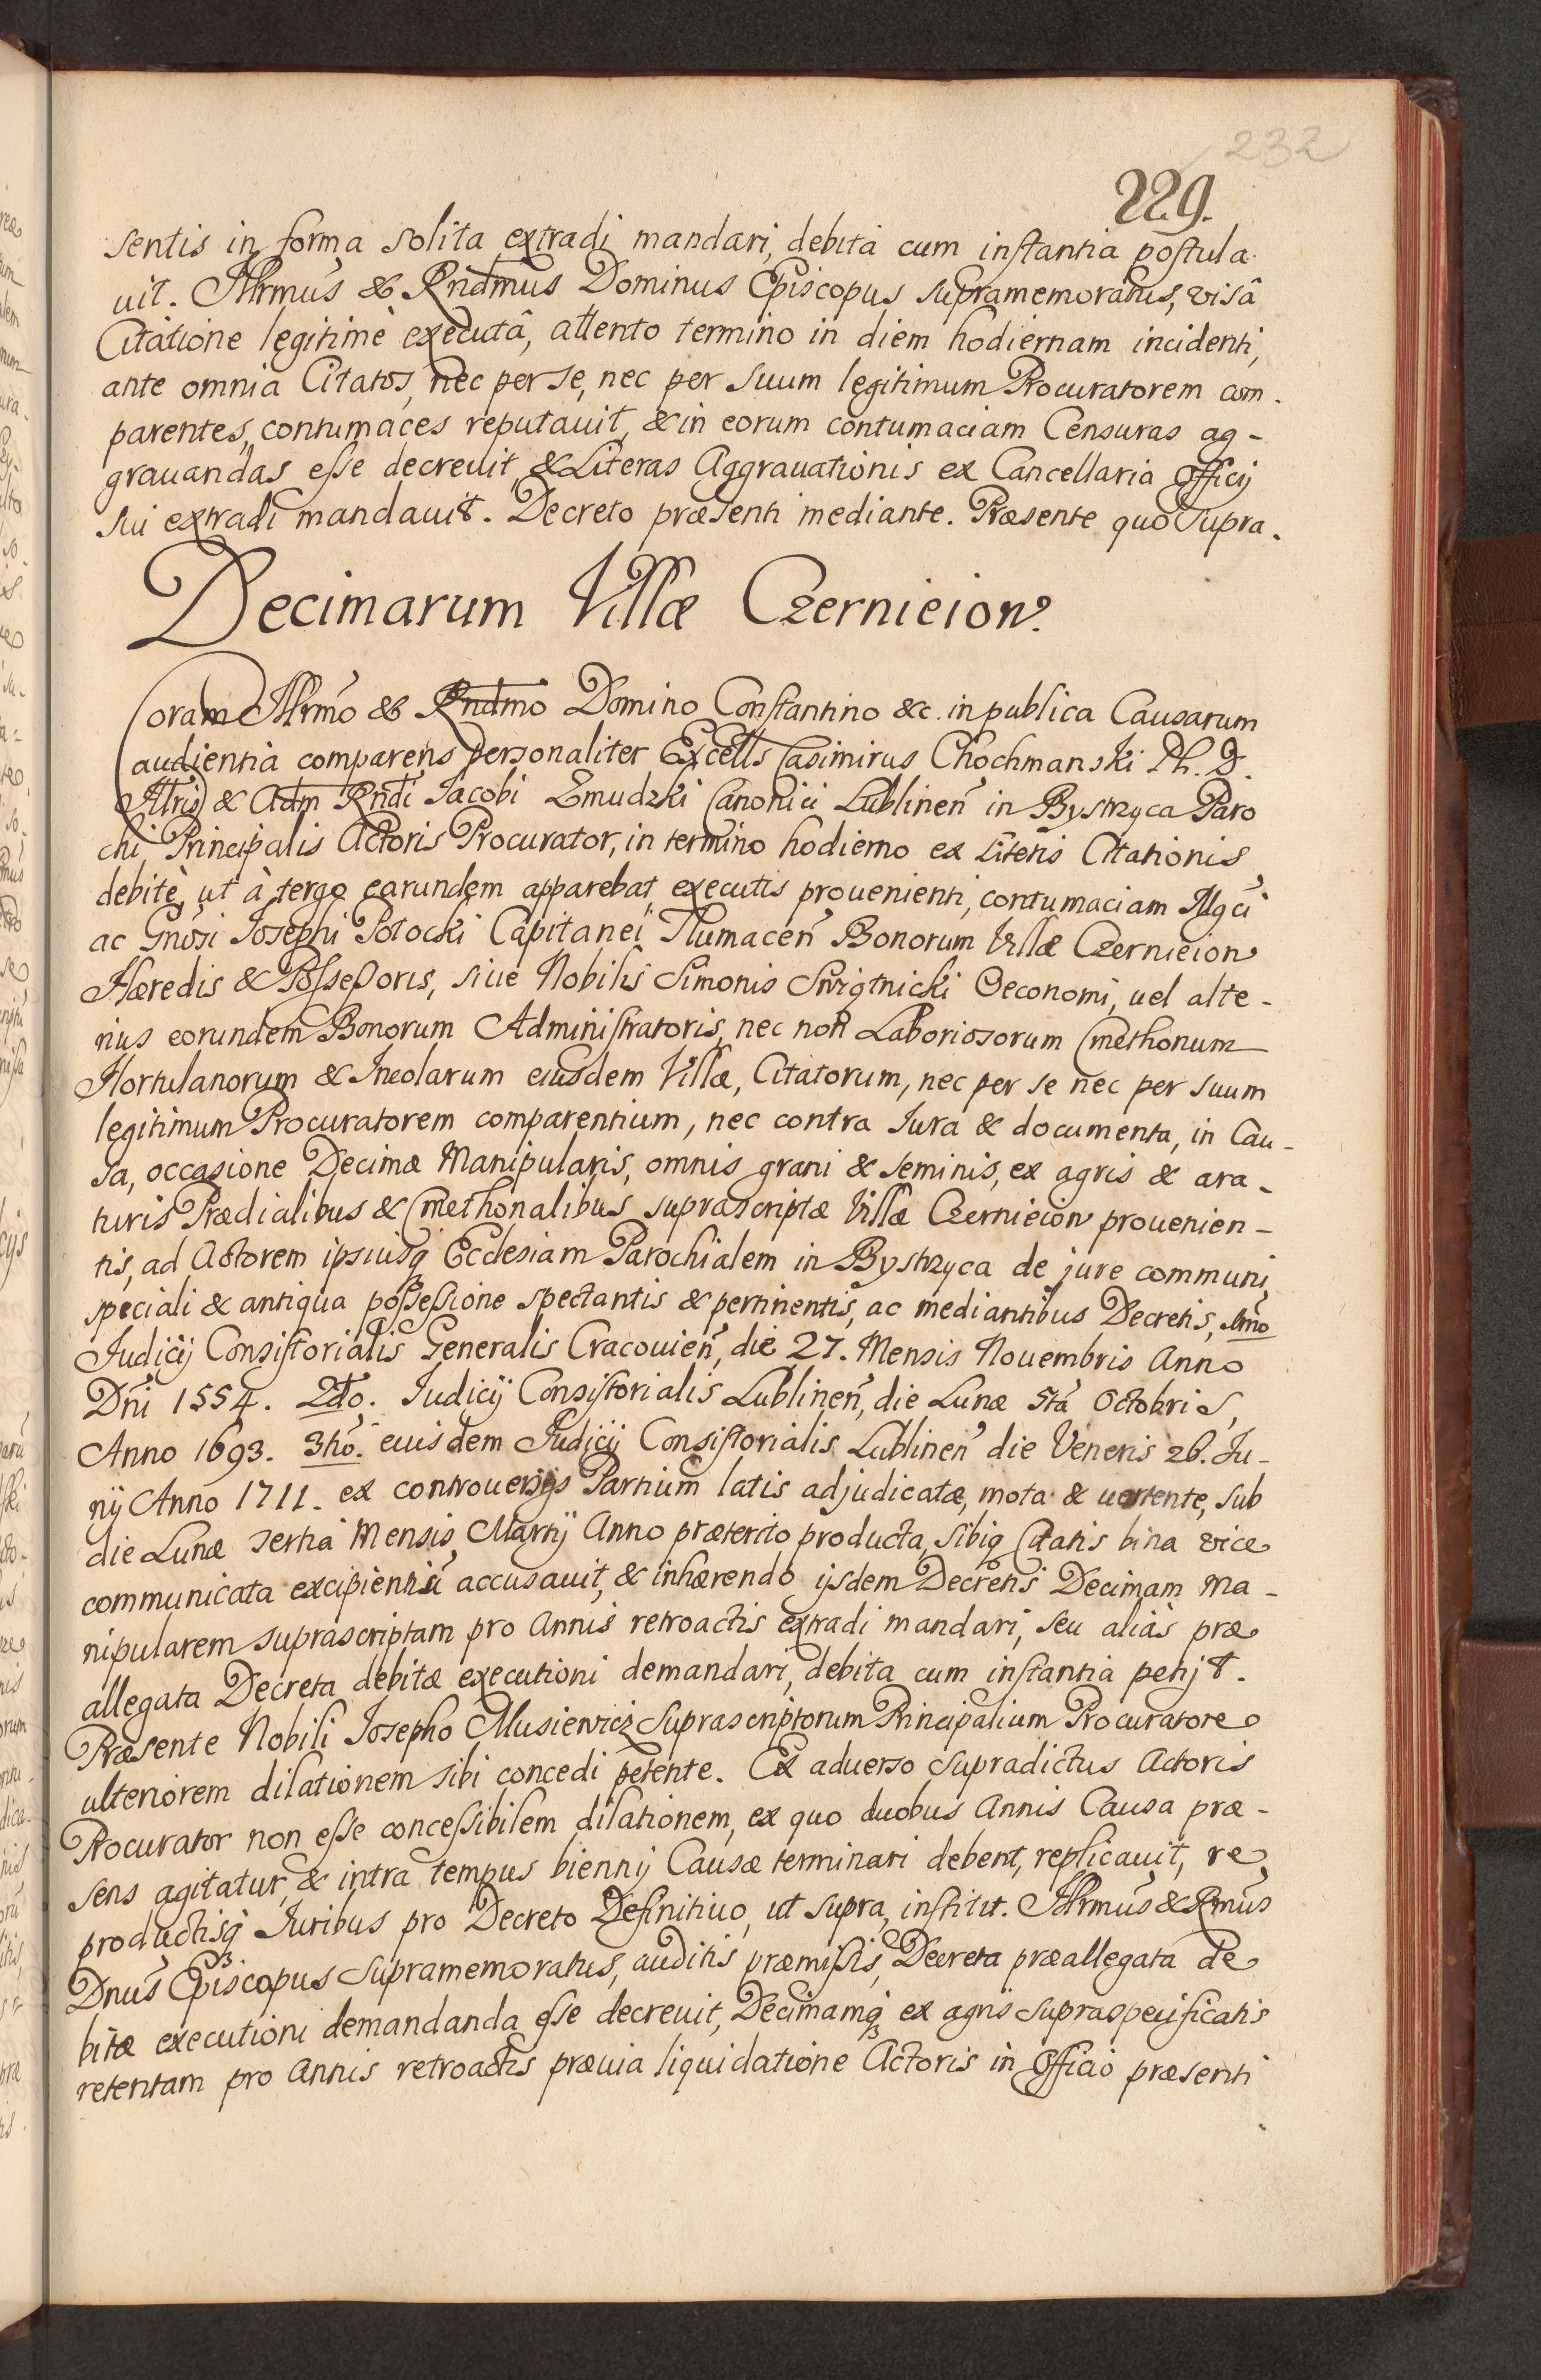 232
229.
sentis in forma solita extradi mandari, debita cum instantia postula-
uit. Illrmus & Rndmus Dominus Episcopus supramemoratus, visâ
Citatione legitimè executâ, attento termino in diem hodiernam incidenti,
ante omnia Citatos, nec per se, nec per suum legitimum Procuratorem com-
parentes, contumaces reputauit, & in eorum contumaciam Censuras ag-
grauandas esse decreuit, & Literas Aggrauationis ex Cancellaria Officij
sui extradi mandauit. Decreto præsenti mediante. Præsente quo supra.
Decimarum Villæ Czernieiow.
Coram Illrmo & Rndmo Domino Constantino &c. in publica Causarum
audientia comparens personaliter Excells Casimirus Chochmanski Ph. D.
Illris & Adm Rndi Iacobi Zmudzki Canonici Lublinen in Bystrzyca Paro
chi, Principalis Actoris Procurator, in termino hodierno ex Literis Citationis,
debitè, ut à tergo earundem apparebat, executis prouenienti, contumaciam Mgci
ac Gnosi Iosephi Potocki Capitanei Tlumacen Bonorum Villæ Czernieiow
Hæredis & Possessoris, siue Nobilis Simonis Oeconomi, uel alte-
rius eorundem Bonorum Administratoris, nec non Laboriosorum Cmethonum
Hortulanorum & Incolarum eiusdem Villæ, Citatorum, nec per se nec per suum
legitimum Procuratorem comparentium, nec contra Iura & documenta, in Cau-
sa, occasione Decimæ Manipularis, omnis grani & seminis, ex agris & ara-
turis Prædialibus & Cmethonalibus suprascriptæ Villæ Czernieiow prouenien-
tis, ad Actorem ipsiusq Ecclesiam Parochialem in Bystrzyca de jure communi,
speciali & antiqua possessione spectantis & pertinentis, ac mediantibus Decretis, 1mo
Iudicij Consistorialis Generalis Cracouien, die 27. Mensis Nouembris Anno
Dni 1554. 2do. Iudicij Consistorialis Lublinen, die Lunæ 5ta Octobris,
Anno 1693. 3tio. euisdem Iudicij Consistorialis Lublinen die Veneris 26. Iu-
nij Anno 1711. ex controuersijs Partium latis adjudicatæ, mota & uertente, sub
die Lunæ tertia Mensis Martij Anno præterito producta, sibiq Citatis bina vice
communicata excipientiu accusauit, & inhærendo ijsdem Decretis Decimam ma-
nipularem suprascriptam pro Annis retroactis extradi mandari, seu aliàs præ
allegata Decreta debitæ executioni demandari, debita cum instantia petijt.
Præsente Nobili Iosepho Musiewicz suprascriptorum Principalium Procuratore
ulteriorem dilationem sibi concedi petente. Ex aduerso supradictus Actoris
Procurator non esse concessibilem dilationem, ex quo duobus Annis Causa præ-
sens agitatur, & intra tempus biennij Causæ terminari debent, replicauit, re
productisq Iuribus pro Decreto Definitiuo, ut supra, institit. Illrmus & Rmus
Dnus Episcopus supramemoratus, auditis præmissis, Decreta præallegata de
bitæ executioni demandanda esse decreuit, Decimamq ex agris supraspecificatis
retentam pro Annis retroactis præuia liquidatione Actoris in Officio præsenti